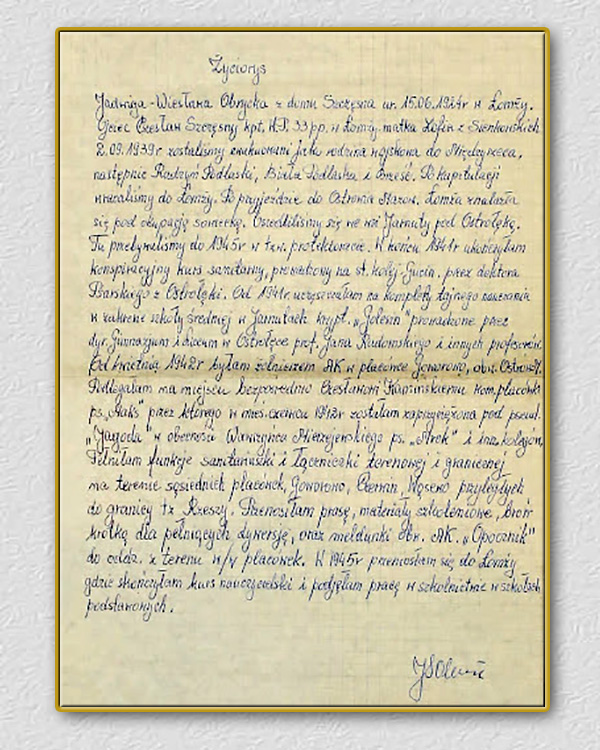 Życiorys
Jadwiga-Wiesława Obrycka z domu Szczęsna ur. 15.06.1924r w Łomży.
Ojciec Czesław Szczęsny kpt. W.P. 33pp. w Łomży matka Zofia z Sienkowskich
2.09.1939r zostaliśmy ewakuowani jako rodzina wojskowa do Międzyrzeca,
następnie Radzyń Podlaski, Biała Podlaska i Brześć. Po kapitulacji
wracaliśmy do Łomży. Po przyjeździe do Ostrowia Mazow. Łomża znalazła
się pod okupacją sowiecką. Osiedliliśmy się we wsi Jarnuty pod Ostrołęką.
Tu przebywaliśmy do 1945r w tzw. protektoracie. W końcu 1941r ukończyłam
konspiracyjny kurs sanitarny, prowadzony na st. kolej-Gucin. przez doktora
Psarskiego z Ostrołęki. Od 1941r. uczęszczałam na komplety tajnego nauczania
w zakresie szkoły średniej w Jarnutach krypt. prowadzone przez
dyr. Gimnazjum i Liceum w Ostrołęce prof. Jana Radomskiego i innych profesorów.
Od kwietnia 1942r byłam żołnierzem AK w placówce Goworowo, obw. Ostrów M.
Podlegałam na miejscu bezpośrednio Czesławowi Kamińskiemu kom. placówki
ps. "Maks" przez którego w mies. czerwcu 1942r zostałam zaprzysiężona pod pseud.
"Jagoda" w obecności Wawrzyńca Mierzejewskiego ps. "Mrok" i in. kolegów.
Pełniłam funkcje sanitariuszki i łączniczki terenowej i granicznej
na terenie sąsiednich placówek, Goworowo, Czerwin, Wąsewo przyległych
do granicy tz. Rzeszy. Przenosiłam prasę, materiały szkoleniowe, broń
krótką dla pełniących dywersję, oraz meldunki Obw. AK. "Opocznik"
do oddz. z terenu w/v placówek. W 1945r przeniosłam się do Łomży
gdzie skończyłam kurs nauczycielski i podjęłam pracę w szkolnictwie w szkołach
podstawowych.